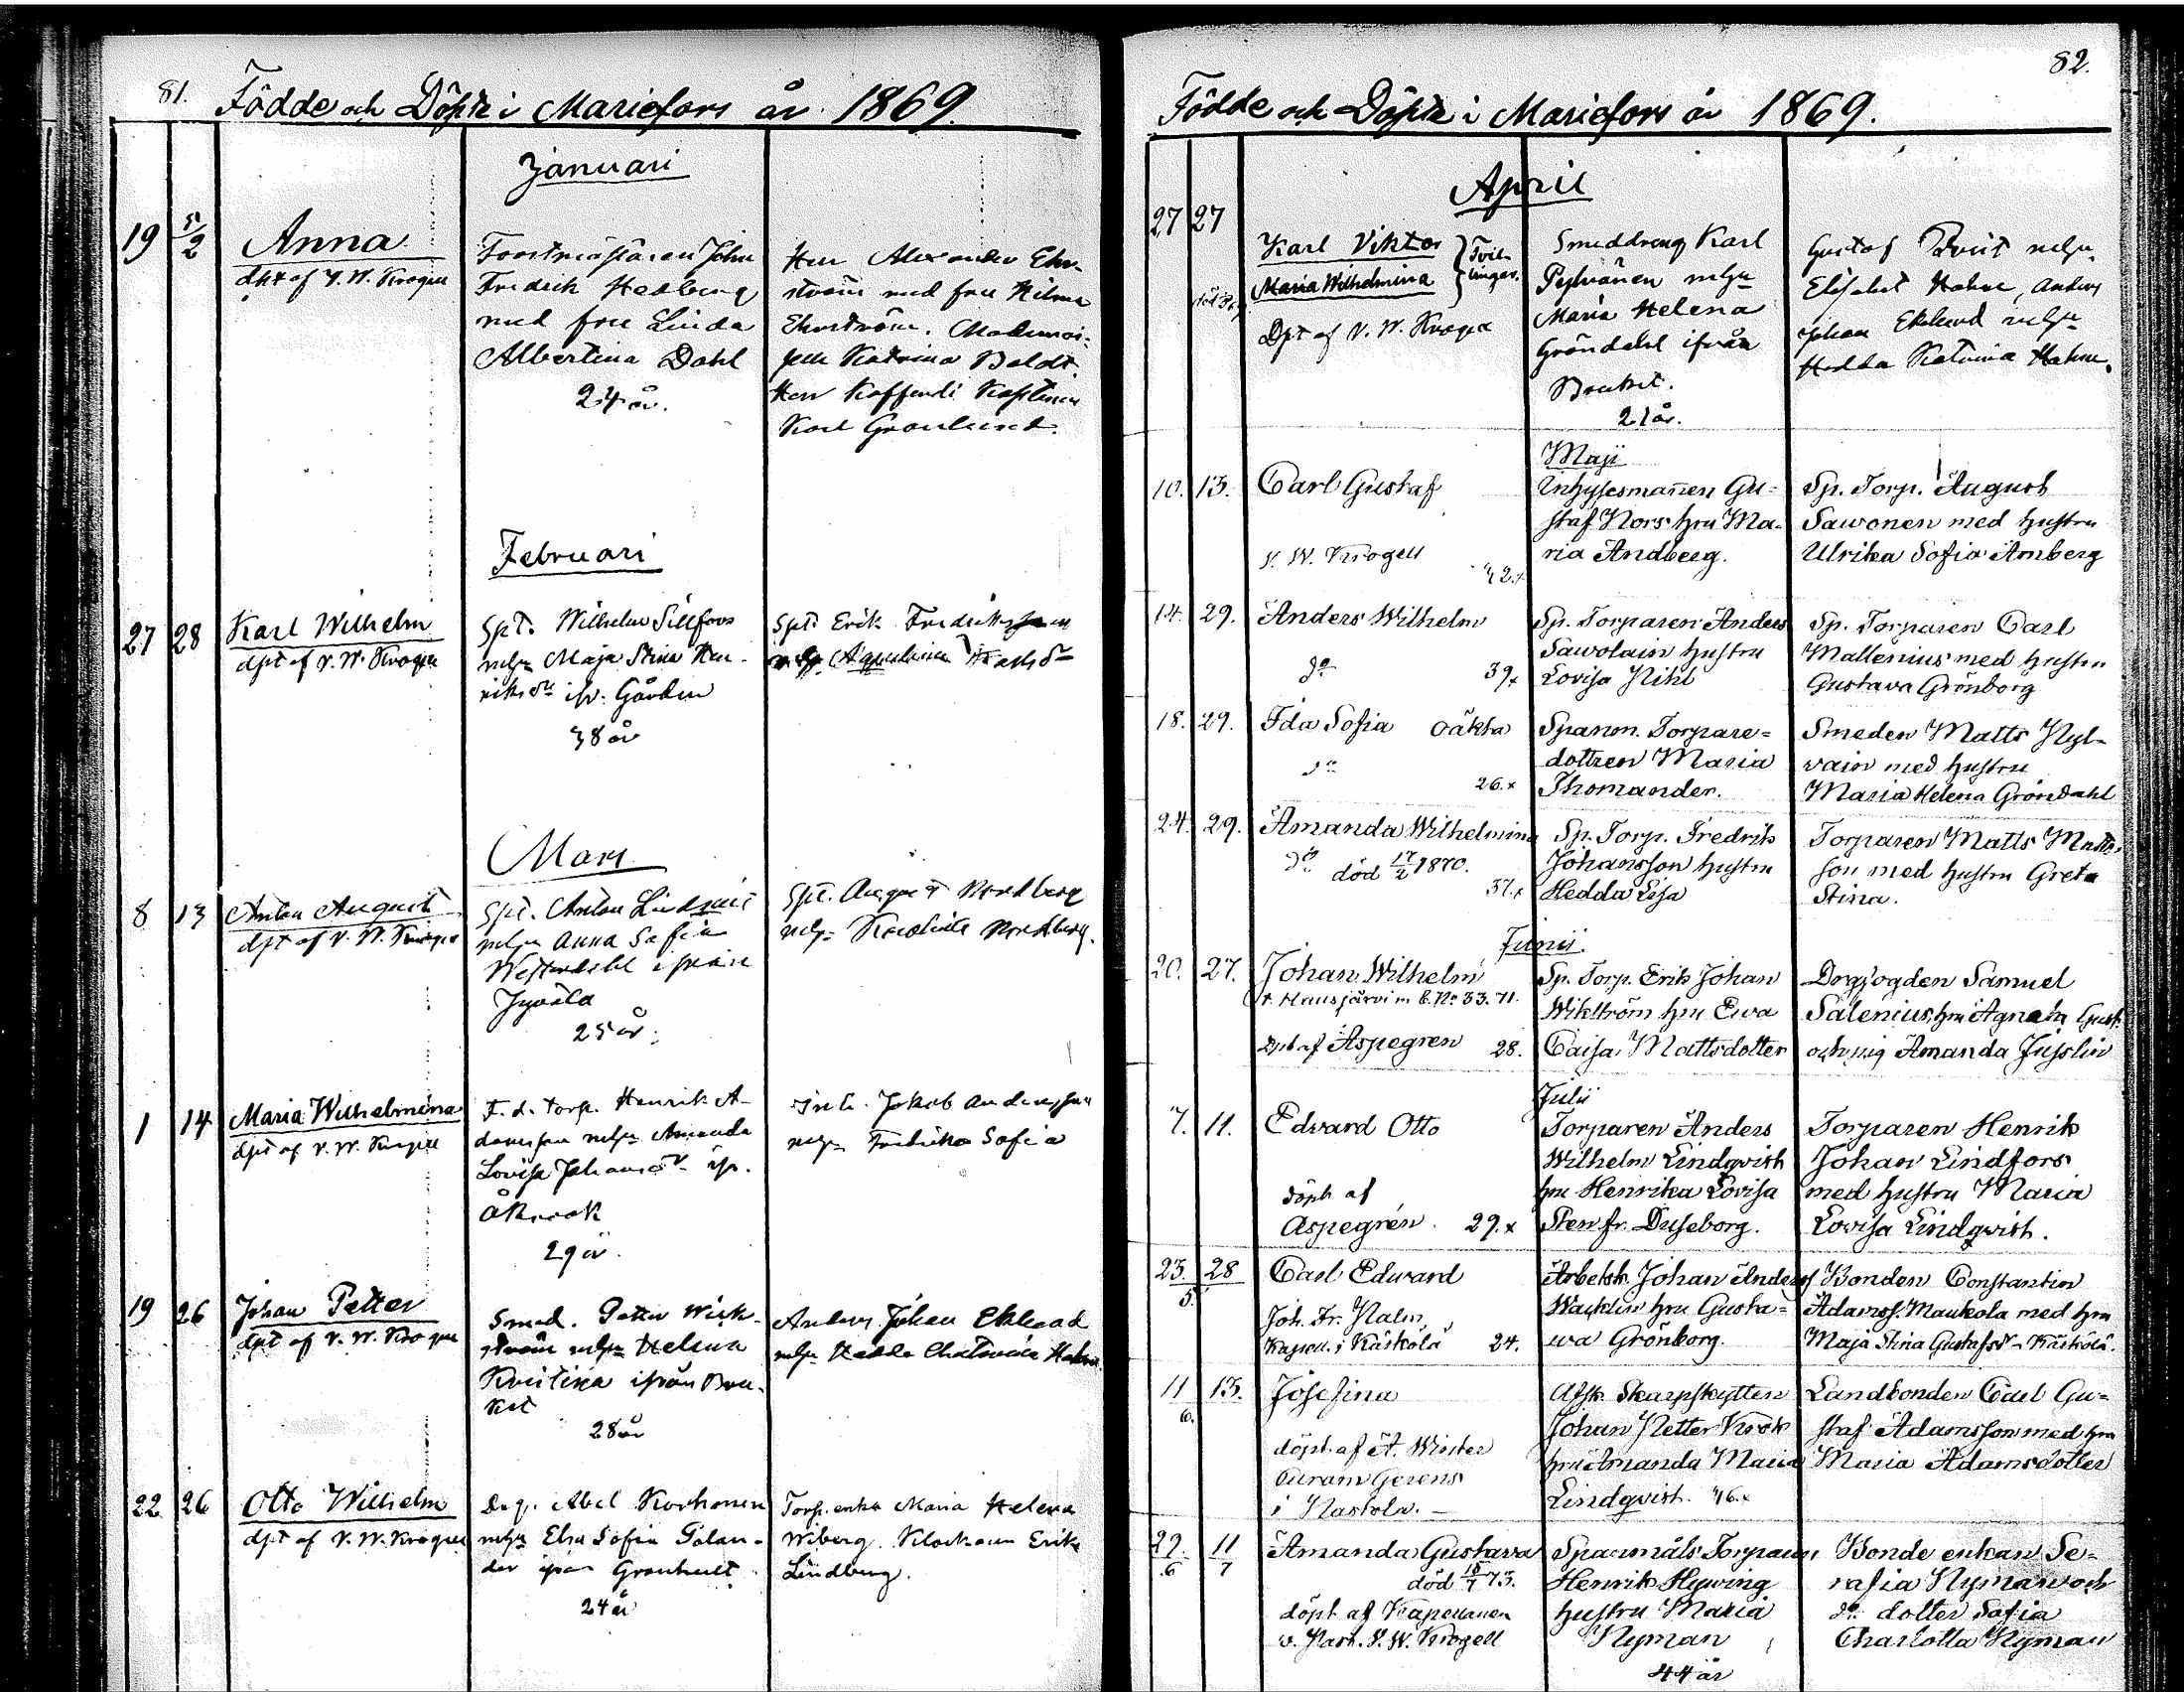 81.
Födde och Döpte i Mariefors år 1869.
Januari
19 5/2 Anna
dpt af V. W. Krogell
Forstmästaren John
Fredrich Hedberg
med fru Linda
Albertina Dahl
24 år.
Herr Alexander Ehr-
ström med fru Hilma
Ehrström. Mademoi-
selle Katrina Boldt.
Herr Kapten
Karl Granlund.
Februari
27 28 Karl Wilhelm
dpt af V. W. Krogell
Spt. Wilhelm Sillfors
Maja Stina Hen-
riksdr ifr. Gården
38 år
Spt. Erik
Mars
8 13 Anton August
dpt af V. W. Krogell
Spt. Anton Lindqvist
Anna Sofia
Westerdahl ifrån
Jyväla
25 år.
Spt. August Nordberg
Karolina Nordberg.
1 14 Maria Wilhelmina
dpt af V. W. Krogell
F. d. Torp. Henrik A-
damsson Amanda
Lovisa Johansdr ifr.
29 år.
Inh. Jakob Andersson
Fredrika Sofia
19 26 Johan Petter
dpt af V. W. Krogell
Smed. Petter Wick-
ström Helena
Kristina ifrån Bru-
ket
28 år
Anders Johan Eklund
Hedda Chatarina Hahne
22 26 Otto Wilhelm
dpt af V. W. Krogell
Drg. Abel Korhonen
Elsa Sofia Solan-
der ifrån Granhult
24 år
Torp. enka Maria Helena
Wiberg. Klockaren Erik
Lindberg.
82.
Födde och Döpte i Mariefors år 1869.
April
27 27 Karl Viktor
Maria Wilhelmina
Tvil-
lingar.
Dpt af V. W. Krogell
Smeddreng Karl
Pylvänen
Maria Helena
Gröndahl ifrån
Bruket.
21 år.
Gustaf Qvist
Elisabet Hahne, Anders
Johan Eklund
Hedda Katrina Hahne.
Maji
10. 13. Carl Gustaf
V. W. Krogell
42.x
Inhysesmannen Gu-
staf Nors hru Ma-
ria Andberg.
Sp. Torp. August
Sawonen med hustru
Ulrika Sofia Amberg
14. 29. Anders Wilhelm
do
39x
Sp. Torparen Anders
Sawolain hustru
Lovisa Pihl
Sp. Torparen Carl
Mallenius med hustru
Gustava Grönborg
18. 29. Ida Sofia oäkta
do
26.x
Spanm. Torpare-
dottren Maria
Thomander.
Smeden Matts Pyl-
vain med hustru
Maria Helena Gröndahl
24. 29. Amanda Wilhelmina
do död 17/2 1870.
37.x
Sp. Torp. Fredrik
Johansson hustru
Hedda Lisa
Torparen Matts Matts-
son med hustru Greta
Stina.
Junii.
20. 27. Johan Wilhelm
t. Hausjärvi m. b. No 33. 71.
Dpt af Aspegren 28.
Sp. Torp. Erik Johan
Wikström hru Ewa
Caisa Mattsdotter
Drgfogden Samuel
Salenius, hru Agneta Gust.
och pig Amanda Jusslin
Julii
7. 11. Edvard Otto
döpt af
Aspegrén. 29.x
Torparen Anders
Wilhelm Lindqvist
hru Henrika Lovisa
Sten fr. Duseborg.
Torparen Henrik
Johan Lindfors
med hustru Maria
Lovisa Lindqvist.
23./5. 28 Carl Edward
Joh. Fr. Palm,
Kapell. i Kärkölä 24.
Arbetsk. Johan Anders
Wacklin hru Gusta-
va Grönborg.
Bonden Constantin
Adamss. Maukola med hru
Maja Stina Gustafsdr Kärkölä.
11/6. 13. Josefina
döpt af A. Winter
i Nastola.
Afsk. Skarpskytten
Johan Petter Krok
hru Amanda Maria
Lindqvist. 46.x
Landbonden Carl Gu-
staf Adamsson med hru
Maria Adamsdotter
29./6 11/7 Amanda Gustava
död 18/7 73.
döpt af Kapellanen
v. Past. V. W. Krogell
Spanmåls Torparen
Henrik Hywing
hustru Maria
Nyman
44 år
Bonde enkan Se-
rafia Nyman och
do dotter Sofia
Charlotta Nyman